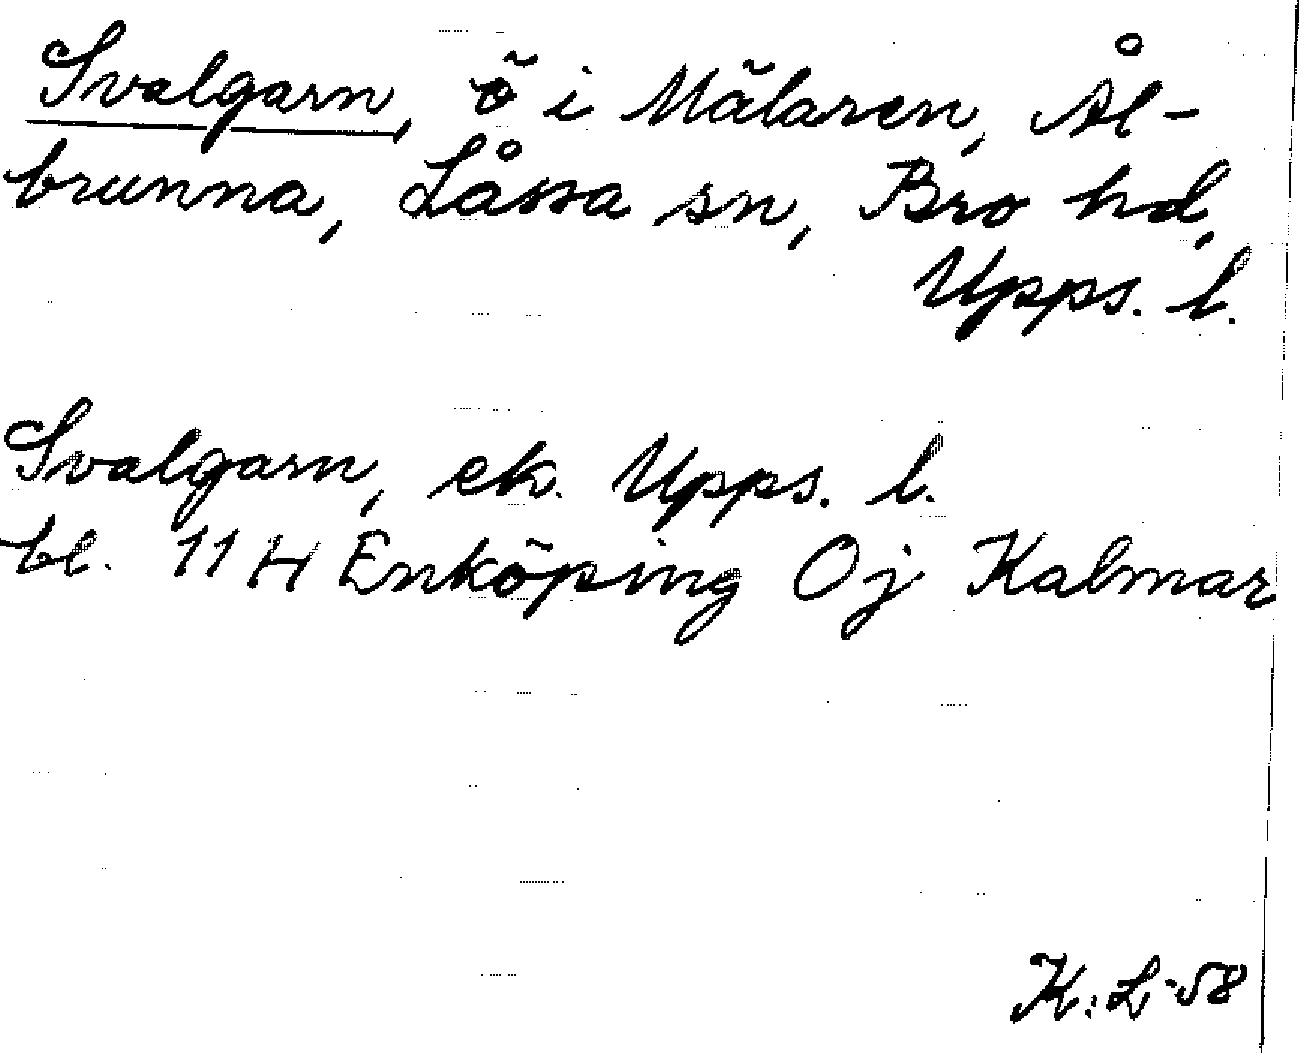 Svalgarn, ö i Mälaren, Ål-
brunna, Låssa sn, Bro hd,
Upps. l.
Svalgarn, ek. Upps. l.
bl. 11 H Enköping Oj Kalmar
K. L-58